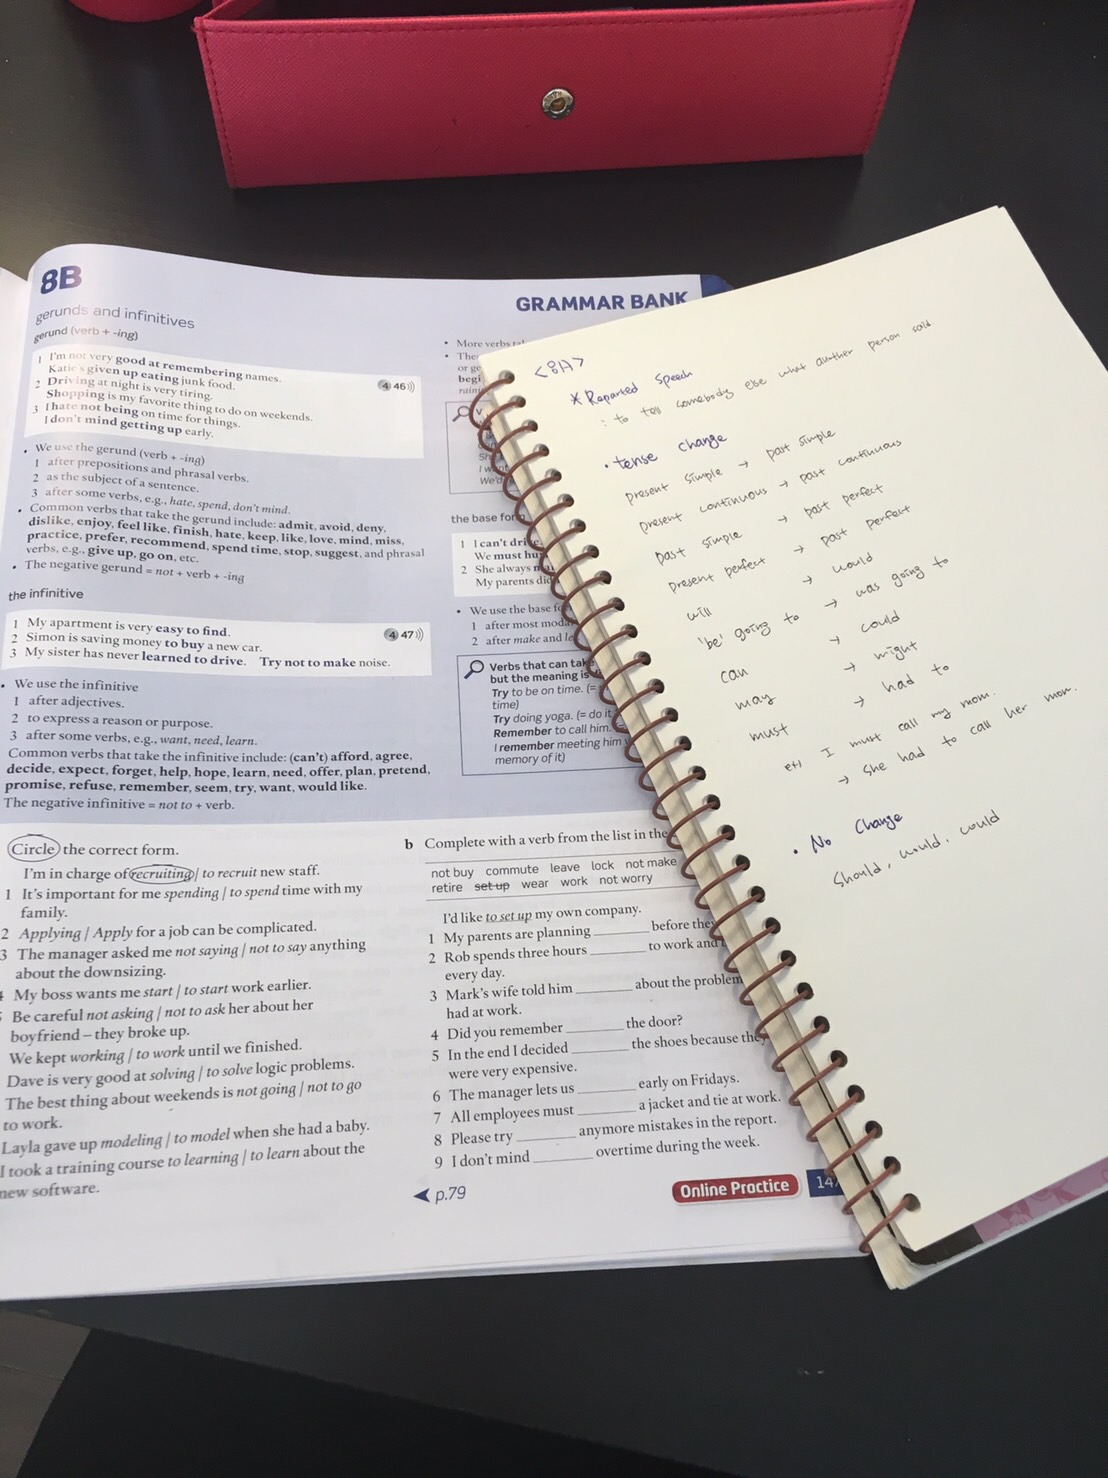 8B
GRAMMAR BANK
gerunds and infinitives
gerund (verb + -ing)
1 I'm not very good at remembering names.
Katie's given up eating junk food.
2 Driving at night is very tiring.
Shopping is my favorite thing to do on weekends.
3 I hate not being on time for things.
I don't mind getting up early.
4 46
• We use the gerund (verb + -ing)
1 after prepositions and phrasal verbs.
2 as the subject of a sentence.
3 after some verbs, e.g., hate, spend, don't mind.
• Common verbs that take the gerund include: admit, avoid, deny,
dislike, enjoy, feel like, finish, hate, keep, like, love, mind, miss,
practice, prefer, recommend, spend time, stop, suggest, and phrasal
verbs, e.g., give up, go on, etc.
• The negative gerund = not + verb + -ing
the infinitive
1 My apartment is very easy to find.
2 Simon is saving money to buy a new car.
3 My sister has never learned to drive. Try not to make noise.
4 47
• We use the infinitive
1 after adjectives.
2 to express a reason or purpose.
3 after some verbs, e.g., want, need, learn.
Common verbs that take the infinitive include: (can't) afford, agree,
decide, expect, forget, help, hope, learn, need, offer, plan, pretend,
promise, refuse, remember, seem, try, want, would like.
The negative infinitive = not to + verb.
• More verbs
• The
or
begi
I
We'd
the base
1 I can't drive
We must
2 She always
My parents
• We use the base
1 after most
2 after make and
Verbs that can
but the meaning is
Try to be on time. (=
time)
Try doing yoga. (= do it
Remember to call him.
I remember meeting him
memory of it)
Circle the correct form.
I'm in charge of recruiting / to recruit new staff.
1 It's important for me spending / to spend time with my
family.
2 Applying / Apply for a job can be complicated.
3 The manager asked me not saying / not to say anything
about the downsizing.
My boss wants me start / to start work earlier.
Be careful not asking / not to ask her about her
boyfriend – they broke up.
We kept working / to work until we finished.
Dave is very good at solving / to solve logic problems.
The best thing about weekends is not going / not to go
to work.
Layla gave up modeling / to model when she had a baby.
I took a training course to learning / to learn about the
new software.
b Complete with a verb from the list in the
not buy commute leave lock not make
retire set up wear work not worry
I'd like to set up my own company.
1 My parents are planning ______ before they
2 Rob spends three hours ______ to work and
every day.
3 Mark's wife told him ______ about the problem
had at work.
4 Did you remember ______ the door?
5 In the end I decided ______ the shoes because they
were very expensive.
6 The manager lets us ______ early on Fridays.
7 All employees must ______ a jacket and tie at work.
8 Please try ______ anymore mistakes in the report.
9 I don't mind ______ overtime during the week.
p.79
Online Practice
147
<8A>
* Reported Speech
: to tell somebody else what another person said
• tense change
present simple → past simple
present continuous → past continuous
past simple → past perfect
present perfect → past perfect
will → would
'be' going to → was going to
can → could
may → might
must → had to
ex) I must call my mom.
→ She had to call her mom.
• No Change
Should, would, could